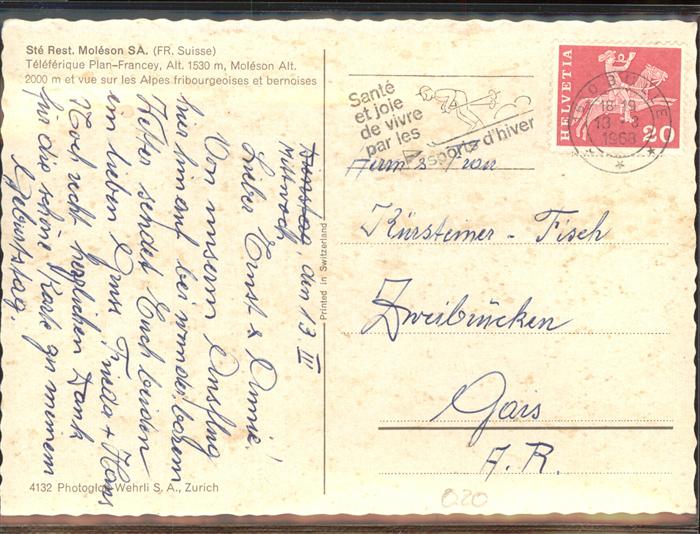 Sté Rest. Moléson SA. (FR. Suisse)
Téléférique Plan-Francey, Alt. 1530 m, Moléson Alt.
2000 m et vue sur les Alpes fribourgeoises et bernoises
Dienstag, den 13. III
Mittwoch
Lieber Ernst & Annie!
Von unserm Ausflug
hier hin auf bei wunderbarem
Wetter sendet Euch beiden
ein lieben Gruss Frieda + Hans
Noch recht herzlichen Dank
für die schöne Karte zu meinem
Geburtstag.
4132 Photoglob-Wehrli S. A., Zurich
Printed in Switzerland
Santé
et joie
de vivre
par les
sports d'hiver
HELVETIA
20
18-19
13
1968
Herrn & Frau
Kürsteiner-Fisch
Zweibrücken
Gais
A.R.
0.20